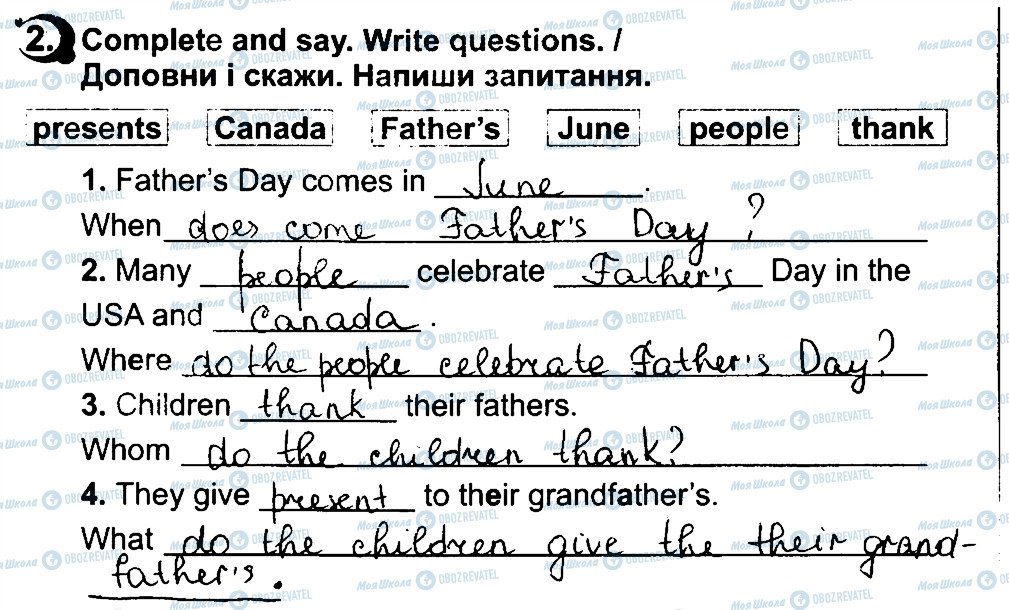 2. Complete and say. Write questions. /
Доповни і скажи. Напиши запитання.
presents Canada Father's June people thank
1. Father's Day comes in June.
When does come Father's Day?
2. Many people celebrate Father's Day in the
USA and Canada.
Where do the people celebrate Father's Day?
3. Children thank their fathers.
Whom do the children thank?
4. They give present to their grandfather's.
What do the children give the their grand-
father's.